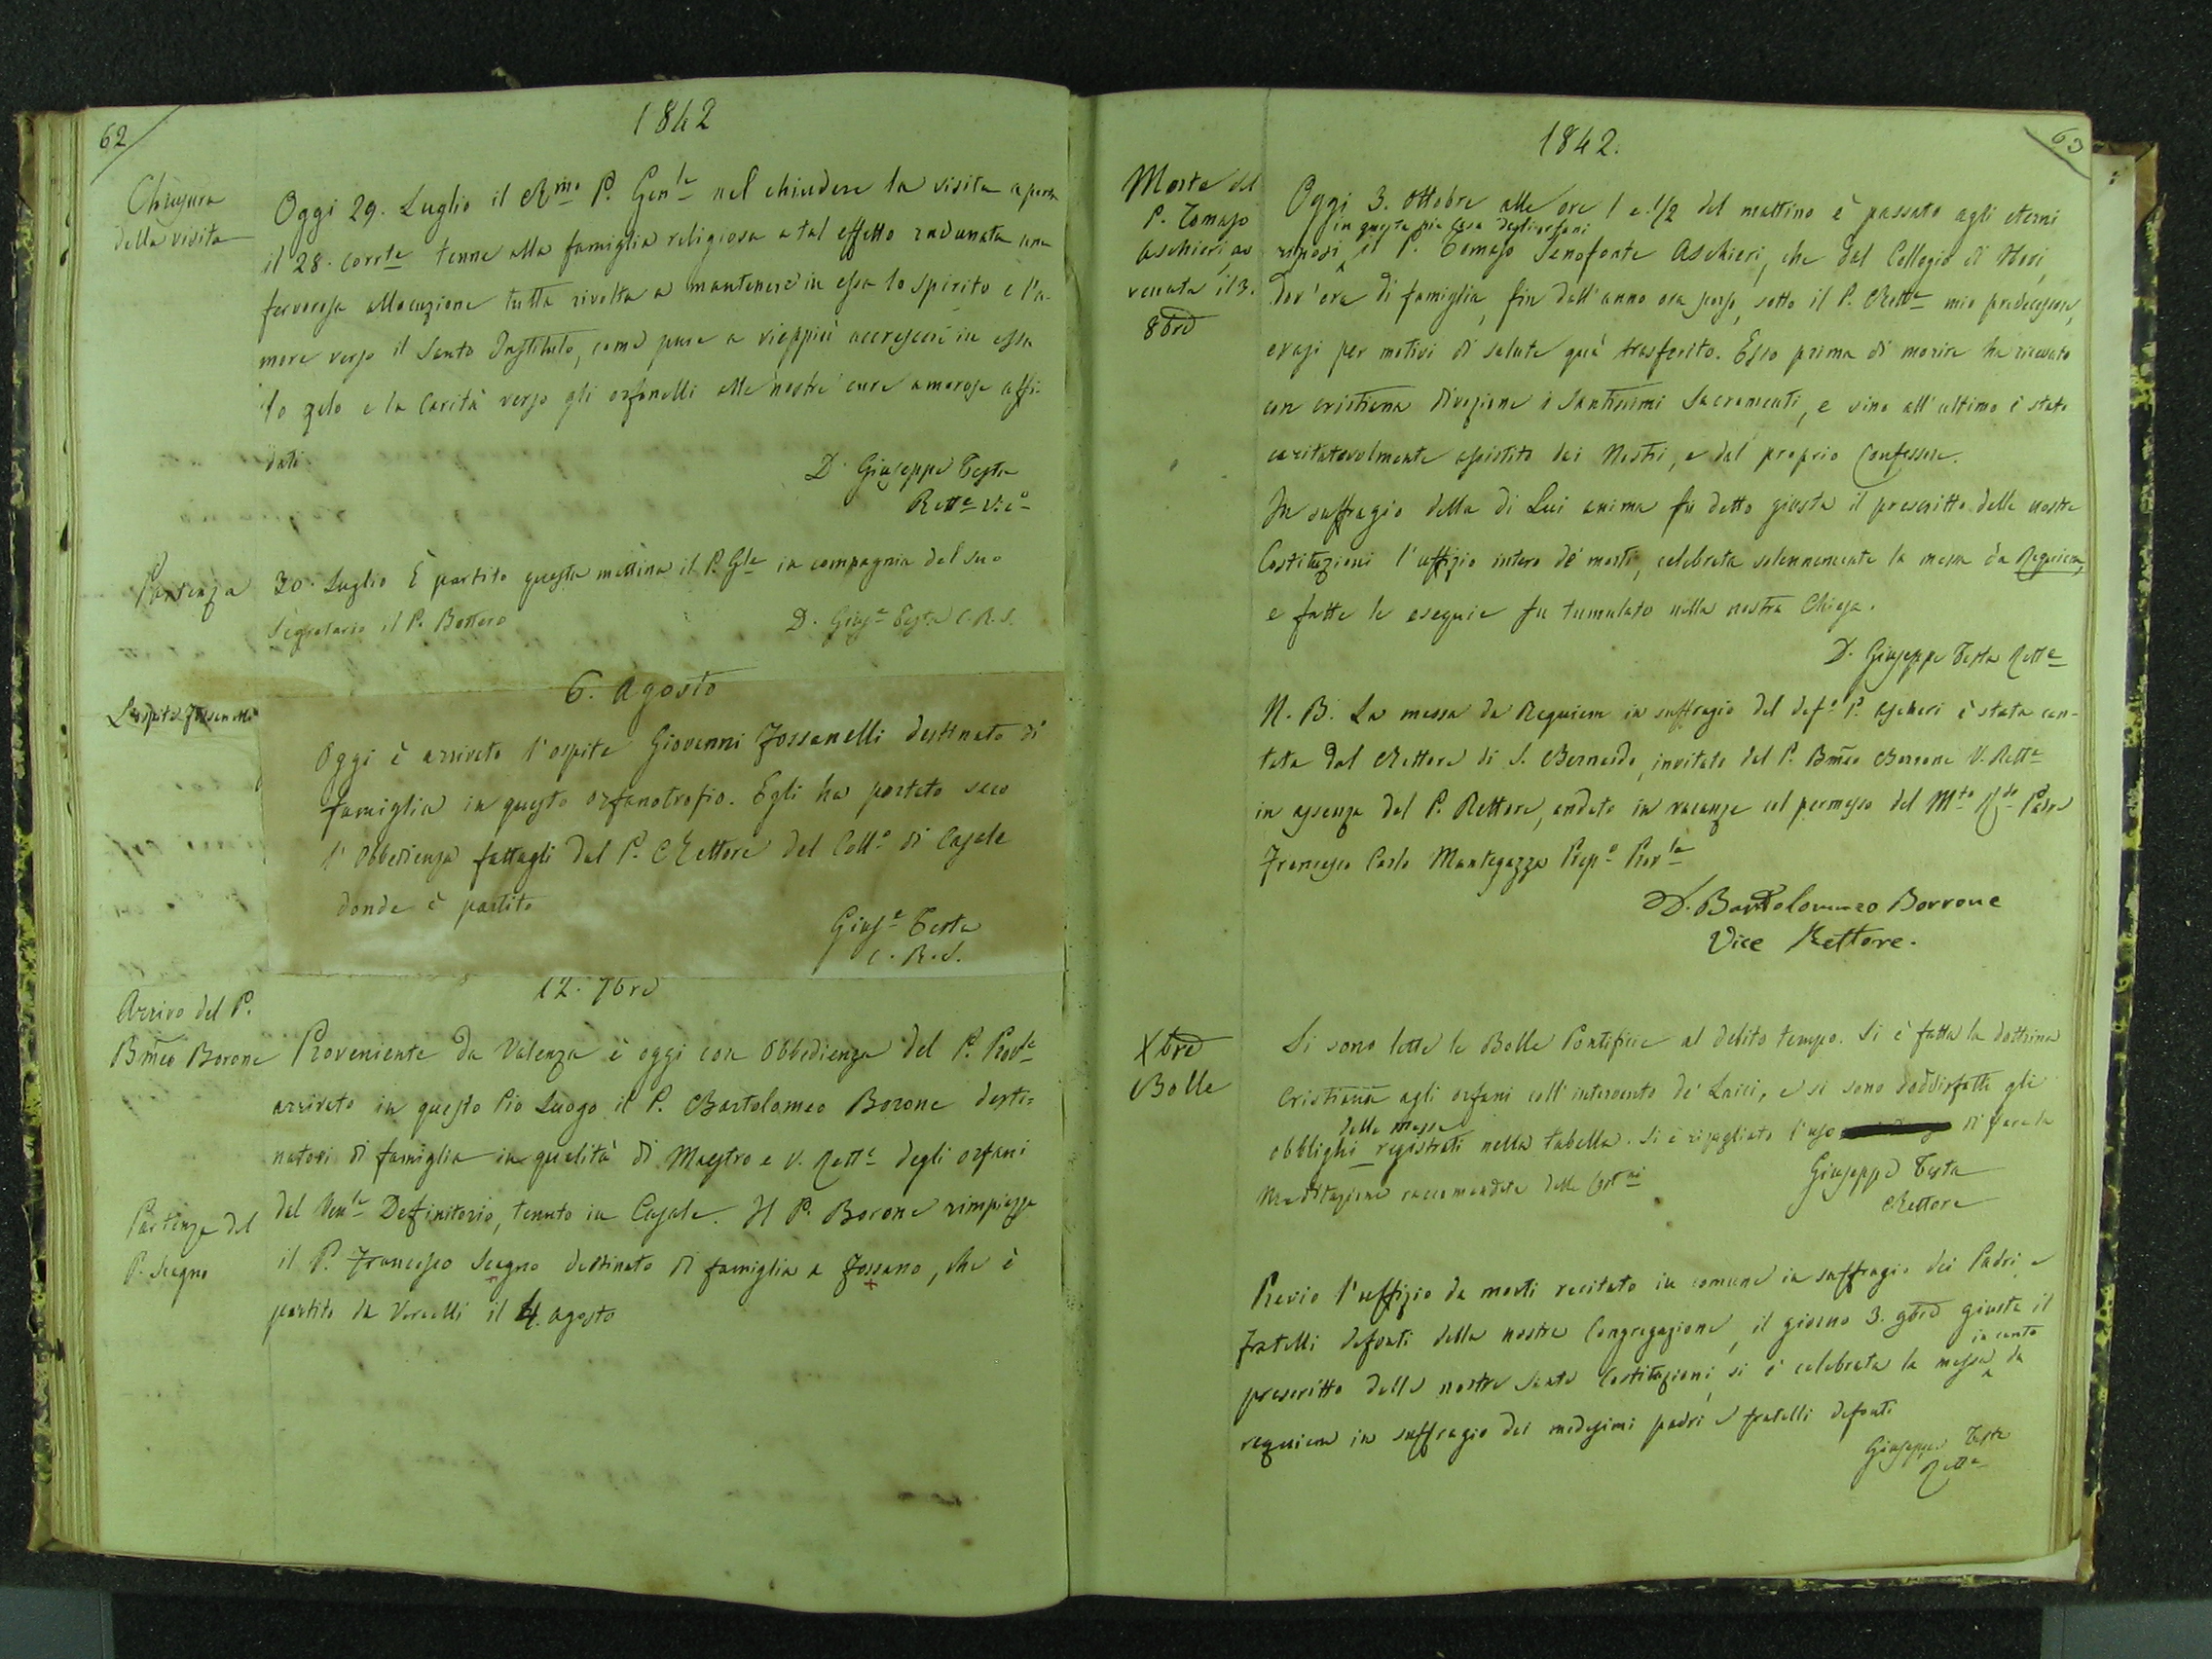 62
1842
Chiusura
della visita
Oggi 29. Luglio il Rmo P. Genle nel chiudere la visita aperta
il 28. corrte tenne alla famiglia religiosa a tal effetto radunata una
fervorosa allocuzione tutta rivolta a mantenere in essa lo spirito e l'a-
more verso il Santo Instituto, come pure a vieppiù accrescere in essa
lo zelo e la carità verso gli orfanelli alle nostre cure amorose affi-
dati
D. Giuseppe Testa
Rette Vico
Partenza
30. Luglio È partito questa mattina il P. Gle in compagnia del suo
Segretario il P. Bottero
D. Giuse Testa C.R.S.
6. Agosto
L'ospite Fossanelli
Oggi è arrivato l'ospite Giovanni Fossanelli destinato di
famiglia in questo orfanotrofio. Egli ha portato seco
l'Obbedienza fattagli dal P. Rettore del Collo di Casale
donde è partito
Giuse Testa
C.R.S.
12. 7bre
Arrivo del P.
Bmeo Borone
Proveniente da Valenza è oggi con Obbedienza del P. Prole
arrivato in questo Pio Luogo il P. Bartolomeo Borone desti=
natovi di famiglia in qualità di Maestro e V. Rette degli orfani
dal Venle Definitorio, tenuto in Casale. Il P. Borone rimpiazza
Partenza del
P. Scagno
il P. Francesco Scagno destinato di famiglia a Fossano, che è
partito da Vercelli il 4. agosto
63
1842.
Morte del
P. Tomaso
Aschieri, av
venuta il 3.
8bre
Oggi 3. Ottobre alle ore 1 e 1/2 del mattino è passato agli eterni
in questa pia Casa degli orfani
riposi il P. Tomaso Senofonte Aschieri, che dal Collegio di Novi,
dov'era di famiglia, fin dall'anno ora scorso, sotto il P. Rette mio predecessore,
erasi per motivi di salute quà trasferito. Esso prima di morire ha ricevuto
con cristiana divozione i Santissimi Sacramenti, e sino all'ultimo è stato
caritatevolmente assistito dai Nostri, e dal proprio Confessore.
In suffragio della di Lui anima fu detto giusta il prescritto delle nostre
Costituzioni l'uffizio intero de' morti, celebrata solennemente la messa da Requiem,
e fatte le esequie fu tumulato nella nostra Chiesa.
D. Giuseppe Testa Rette
N.B. La messa da Requiem in suffragio del defo P. Aschieri è stata can-
tata dal Rettore di S. Bernardo, invitato dal P. Bmeo Borrone V. Rette
in assenza del P. Rettore, andato in vacanza col permesso del Mto Rdo Padre
Francesco Carlo Mantegazza Prepo Provle
D. Bartolommeo Borrone
Vice Rettore.
Xbre
Bolle
Si sono lette le Bolle Pontificie al debito tempo. Si è fatta la dottrina
Cristiana agli orfani coll'intervento de' Laici, e si sono soddisfatti gli
delle messe
obblighi registrati nella tabella. Si è risvegliato l'uso di fare la
Meditazione raccomandata dalle Costni
Giuseppe Testa
Rettore
Previo l'uffizio da morti recitato in comune in suffragio dei Padri e
fratelli defonti della nostra Congregazione, il giorno 3. 9bre giusta il
prescritto delle nostre Sante Costituzioni, si è celebrata la messa in canto da
requiem in suffragio dei medesimi padri e fratelli defonti
Giuseppe Testa
Rette